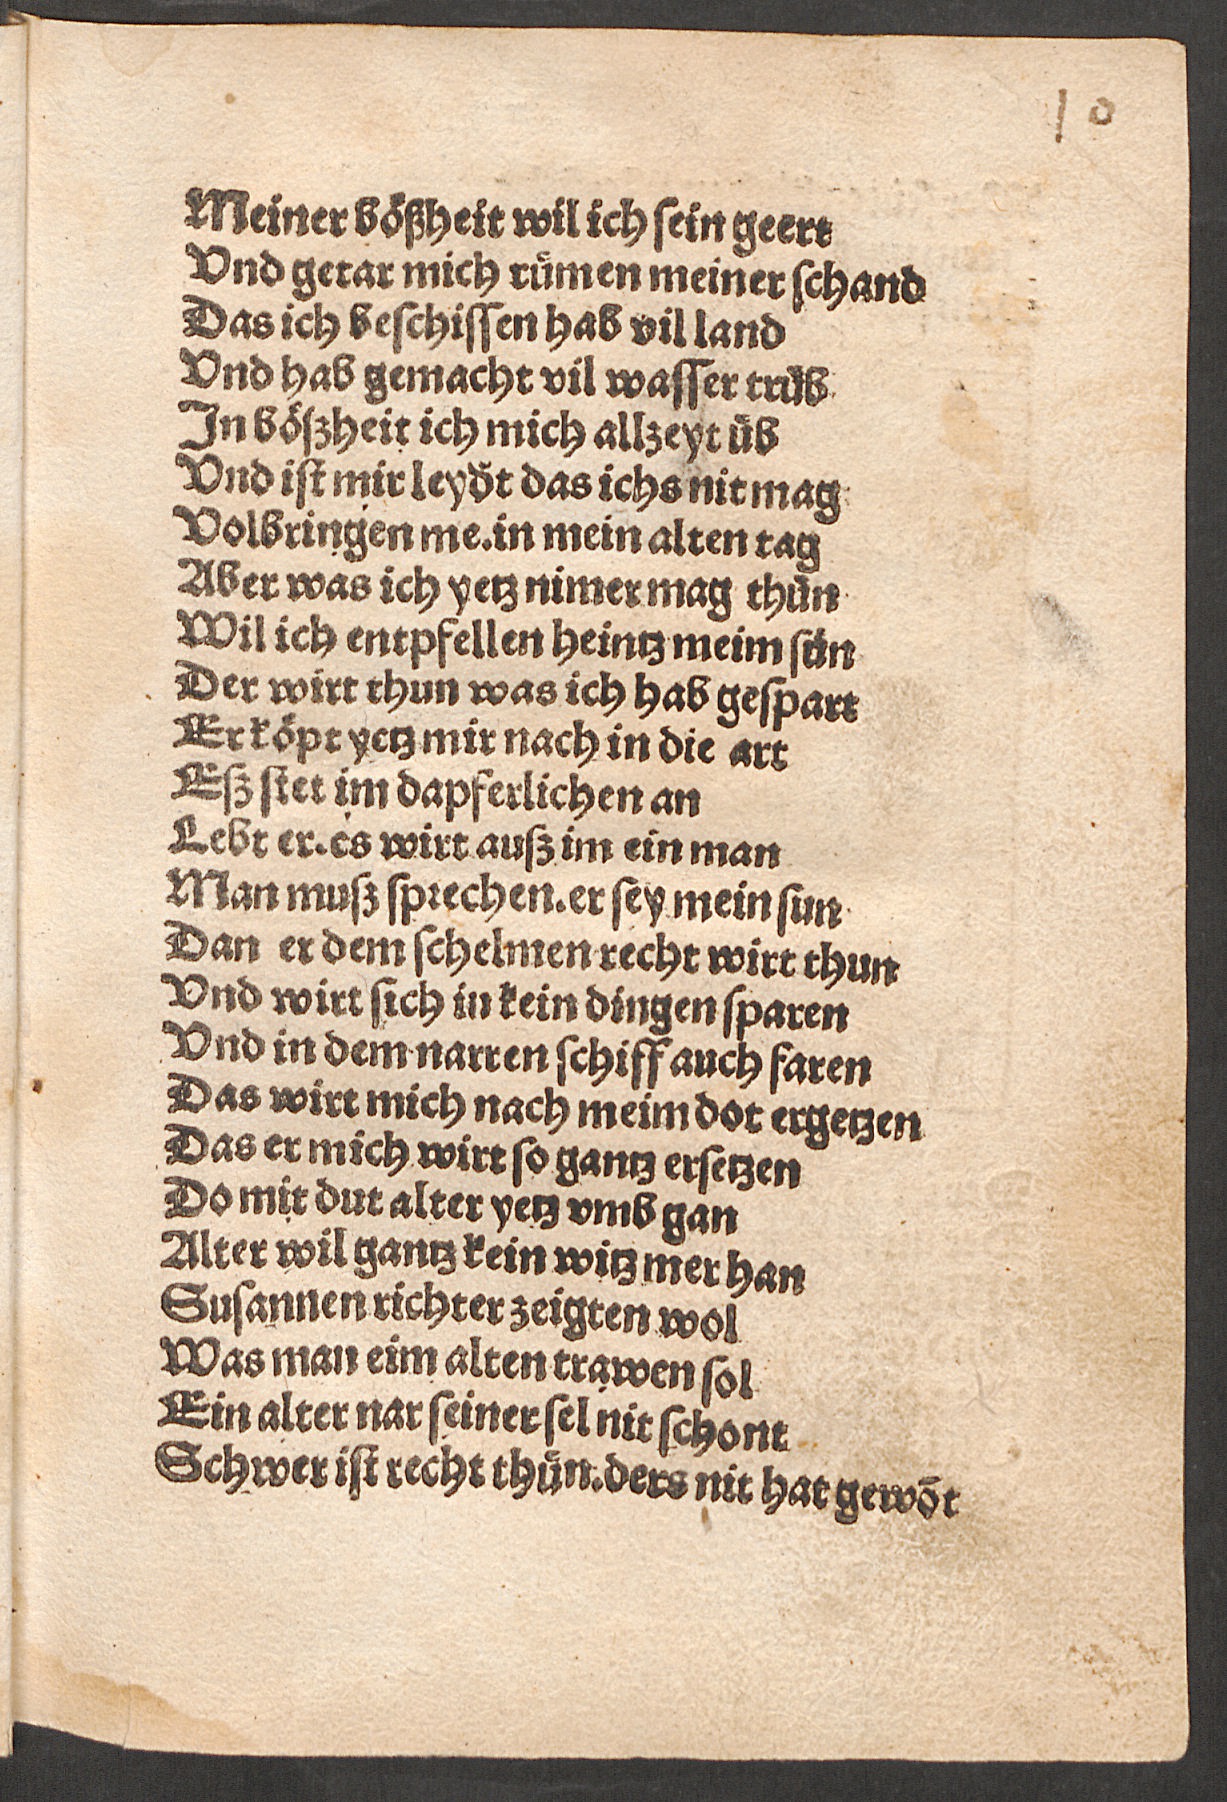 10
Meiner bößheit wil ich sein geert
Vnd getar mich rümen meiner schand
Das ich beschissen hab vil land
Vnd hab gemacht vil wasser trüb
In bößheit ich mich allzeyt üb
Vnd ist mir leydt das ichs nit mag
Volbringen me. in mein alten tag
Aber was ich yetz nimer mag thün
Wil ich entpfellen heintz meim sün
Der wirt thun was ich hab gespart
Er köpt yetz mir nach in die art
Eß stet im dapferlichen an
Lebt er. es wirt auß im ein man
Man muß sprechen. er sey mein sun
Dan er dem schelmen recht wirt thun
Vnd wirt sich in kein dingen sparen
Vnd in dem narren schiff auch faren
Das wirt mich nach meim dot ergetzen
Das er mich wirt so gantz ersetzen
Do mit dut alter yetz vmb gan
Alter wil gantz kein witz mer han
Susannen richter zeigten wol
Was man eim alten trawen sol
Ein alter nar seiner sel nit schont
Schwer ist recht thün. ders nit hat gewōt